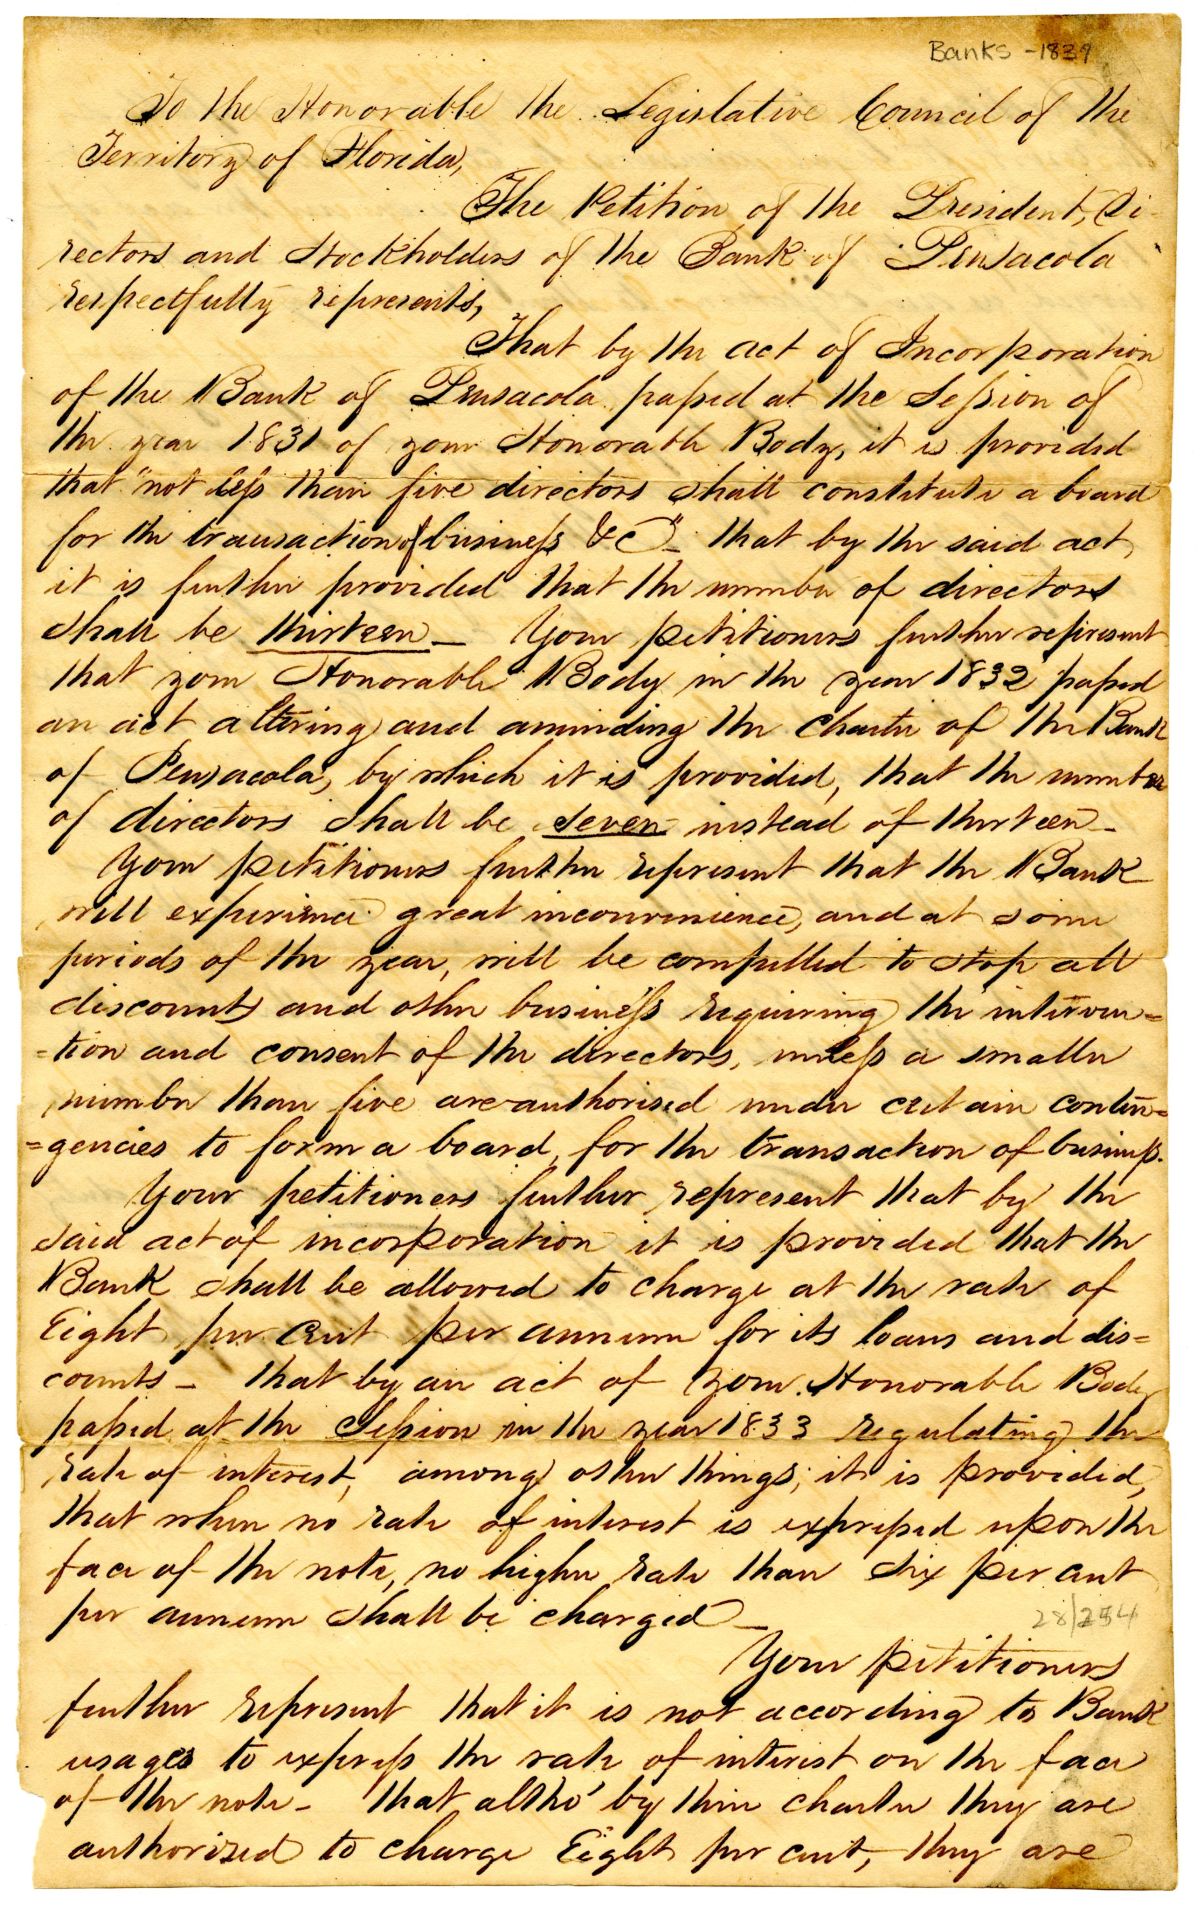 Banks - 1834
To the Honorable the Legislative Council of the
Territory of Florida,
The Petition of the President, Di-
rectors and Stockholders of the Bank of Pensacola
respectfully represents,
That by the act of Incorporation
of the Bank of Pensacola passed at the Session of
the year 1831 of your Honorable Body, it is provided
that "not less than five directors shall constitute a board
for the transaction of business &c" - that by the said act
it is further provided that the number of directors
shall be thirteen - Your petitioners further represent
that your Honorable Body in the year 1832 passed
an act altering and amending the charter of the Bank
of Pensacola, by which it is provided, that the number
of directors shall be seven instead of thirteen -
Your petitioners further represent that the Bank
will experience great inconvenience, and at some
periods of the year, will be compelled to stop all
discounts and other business requiring the interven=
=tion and consent of the directors, unless a smaller
number than five are authorised under certain contin=
=gencies to form a board, for the transaction of business.
Your petitioners further represent that by the
said act of incorporation it is provided that the
Bank shall be allowed to charge at the rate of
Eight per cent per annum for its loans and dis=
counts - that by an act of your Honorable Body
passed at the Session in the year 1833 regulating the
rate of interest, among other things, it is provided,
that when no rate of interest is expressed upon the
face of the note, no higher rate than six per cent
per annum shall be charged -
28/254
Your petitioners
further represent that it is not according to Bank
usages to express the rate of interest on the face
of the note - that altho' by their charter they are
authorized to charge Eight per cent, they are